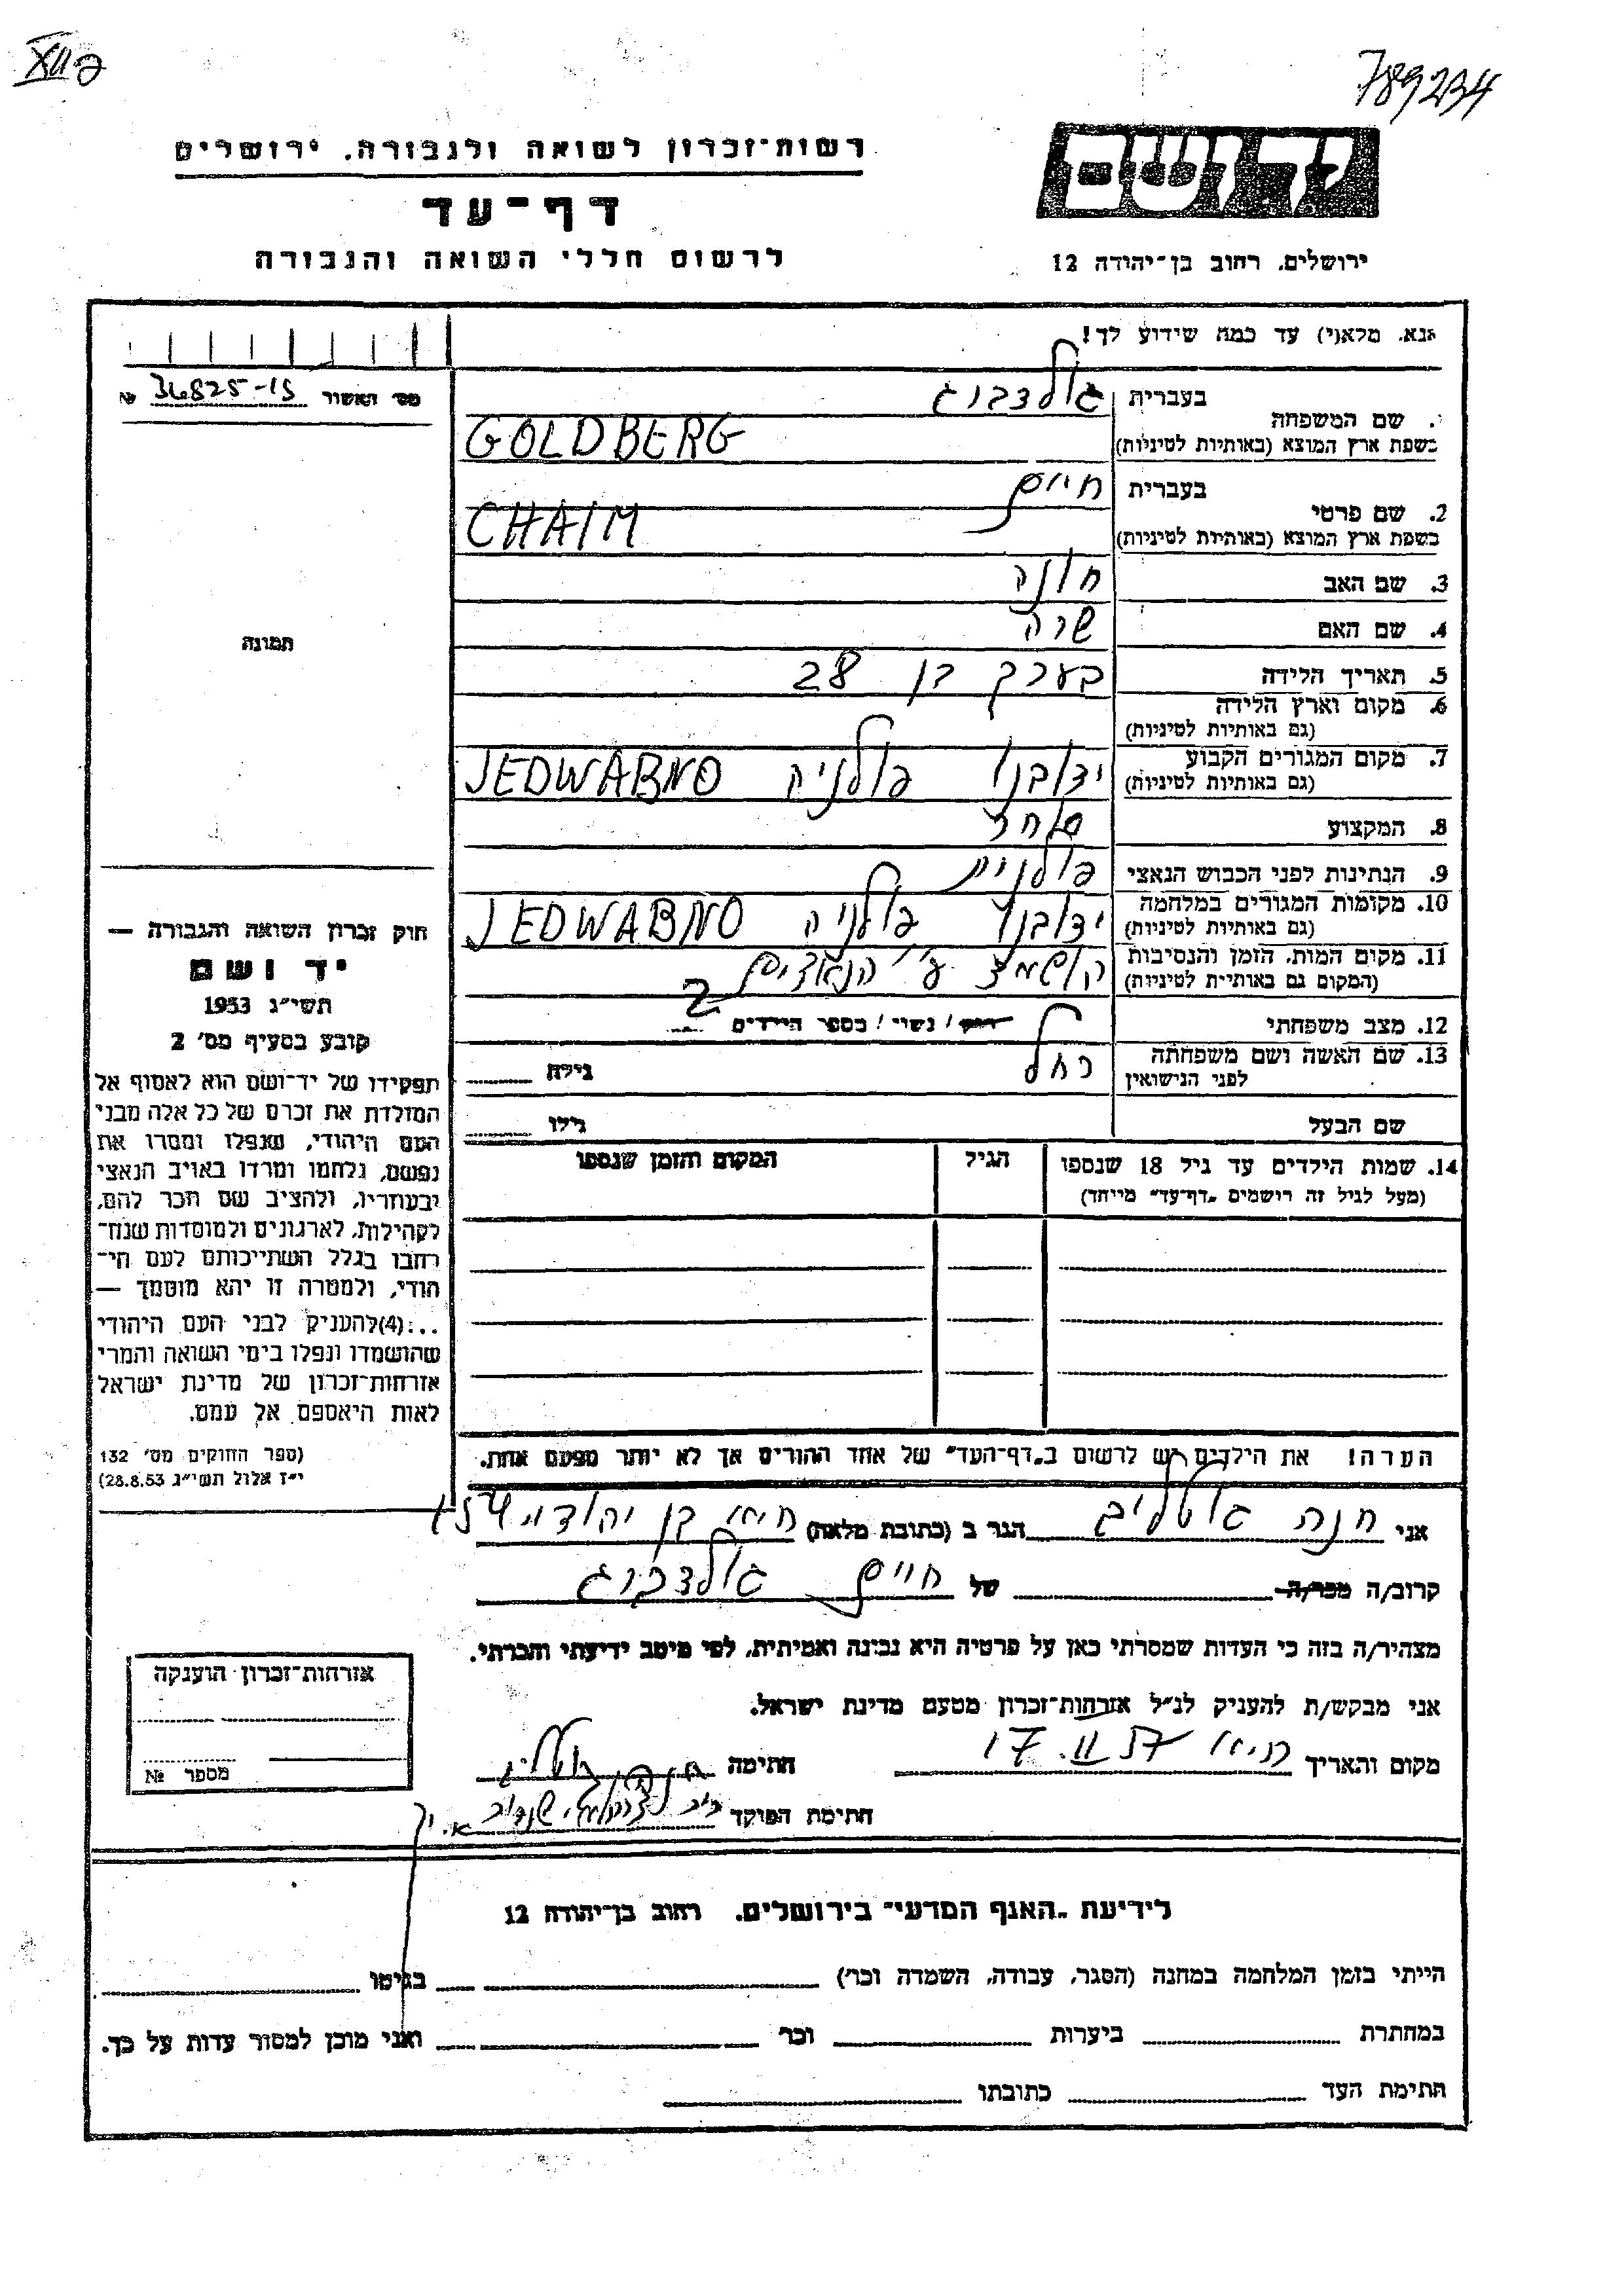 789234
רשות־זכרון לשואה ולגבורה, ירושלים
דף־עד
לרשום חללי השואה והגבורה
יד ושם
ירושלים, רחוב בן־יהודה 12
אנא, מלא(י) עד כמה שידוע לך!
מס' האשור 36825-15 №
1. שם המשפחה
בעברית גולדברג
בשפת ארץ המוצא (באותיות לטיניות) GOLDBERG
2. שם פרטי
בעברית חיים
בשפת ארץ המוצא (באותיות לטיניות) CHAIM
3. שם האב חונה
4. שם האם שרה
5. תאריך הלידה בערך בן 28
6. מקום וארץ הלידה
(גם באותיות לטיניות)
7. מקום המגורים הקבוע
(גם באותיות לטיניות) ידובנו פולניה JEDWABNO
8. המקצוע סוחר
9. הנתינות לפני הכבוש הנאצי פולנית
10. מקומות המגורים במלחמה
(גם באותיות לטיניות) ידובנו פולניה JEDWABNO
11. מקום המות, הזמן והנסיבות
(המקום גם באותיות לטיניות) הושמד ע"י הנאצים
12. מצב משפחתי רווק / נשוי / מספר הילדים 2
13. שם האשה ושם משפחתה
לפני הנישואין רחל גילה
שם הבעל גילו
14. שמות הילדים עד גיל 18 שנספו
(מעל לגיל זה רושמים „דף־עד" מיוחד)
הגיל
המקום והזמן שנספו
הערה! את הילדים יש לרשום ב„דף־העד" של אחד ההורים אך לא יותר מפעם אחת.
תמונה
חוק זכרון השואה והגבורה —
יד ושם
תשי"ג 1953
קובע בסעיף מס' 2
תפקידו של יד־ושם הוא לאסוף אל
המולדת את זכרם של כל אלה מבני
העם היהודי, שנפלו ומסרו את
נפשם, נלחמו ומרדו באויב הנאצי
ובעוזריו, ולהציב שם וזכר להם,
לקהילות, לארגונים ולמוסדות שנח־
רבו בגלל השתייכותם לעם הי־
הודי, ולמטרה זו יהא מוסמך —
...(4) להעניק לבני העם היהודי
שהושמדו ונפלו בימי השואה והמרי
אזרחות־זכרון של מדינת ישראל
לאות היאספם אל עמם.
(ספר החוקים מס' 132
י"ז אלול תשי"ג 28.8.53)
אני חנה גוטליב הגר ב (כתובת מלאה) בן יהודה 154
קרוב/ה מכר/ה של חיים גולדברג
מצהיר/ה בזה כי העדות שמסרתי כאן על פרטיה היא נכונה ואמיתית, לפי מיטב ידיעתי והכרתי.
אני מבקש/ת להעניק לנ"ל אזרחות־זכרון מטעם מדינת ישראל.
מקום והתאריך 17.II.57 חתימה
חתימת הפוקד
אזרחות־זכרון הוענקה
מספר №
לידיעת „האגף המדעי" בירושלים, רחוב בן־יהודה 12
הייתי בזמן המלחמה במחנה (הסגר, עבודה, השמדה וכו') בגיטו
במחתרת ביערות וכו' ואני מוכן למסור עדות על כך.
חתימת העד כתובתו